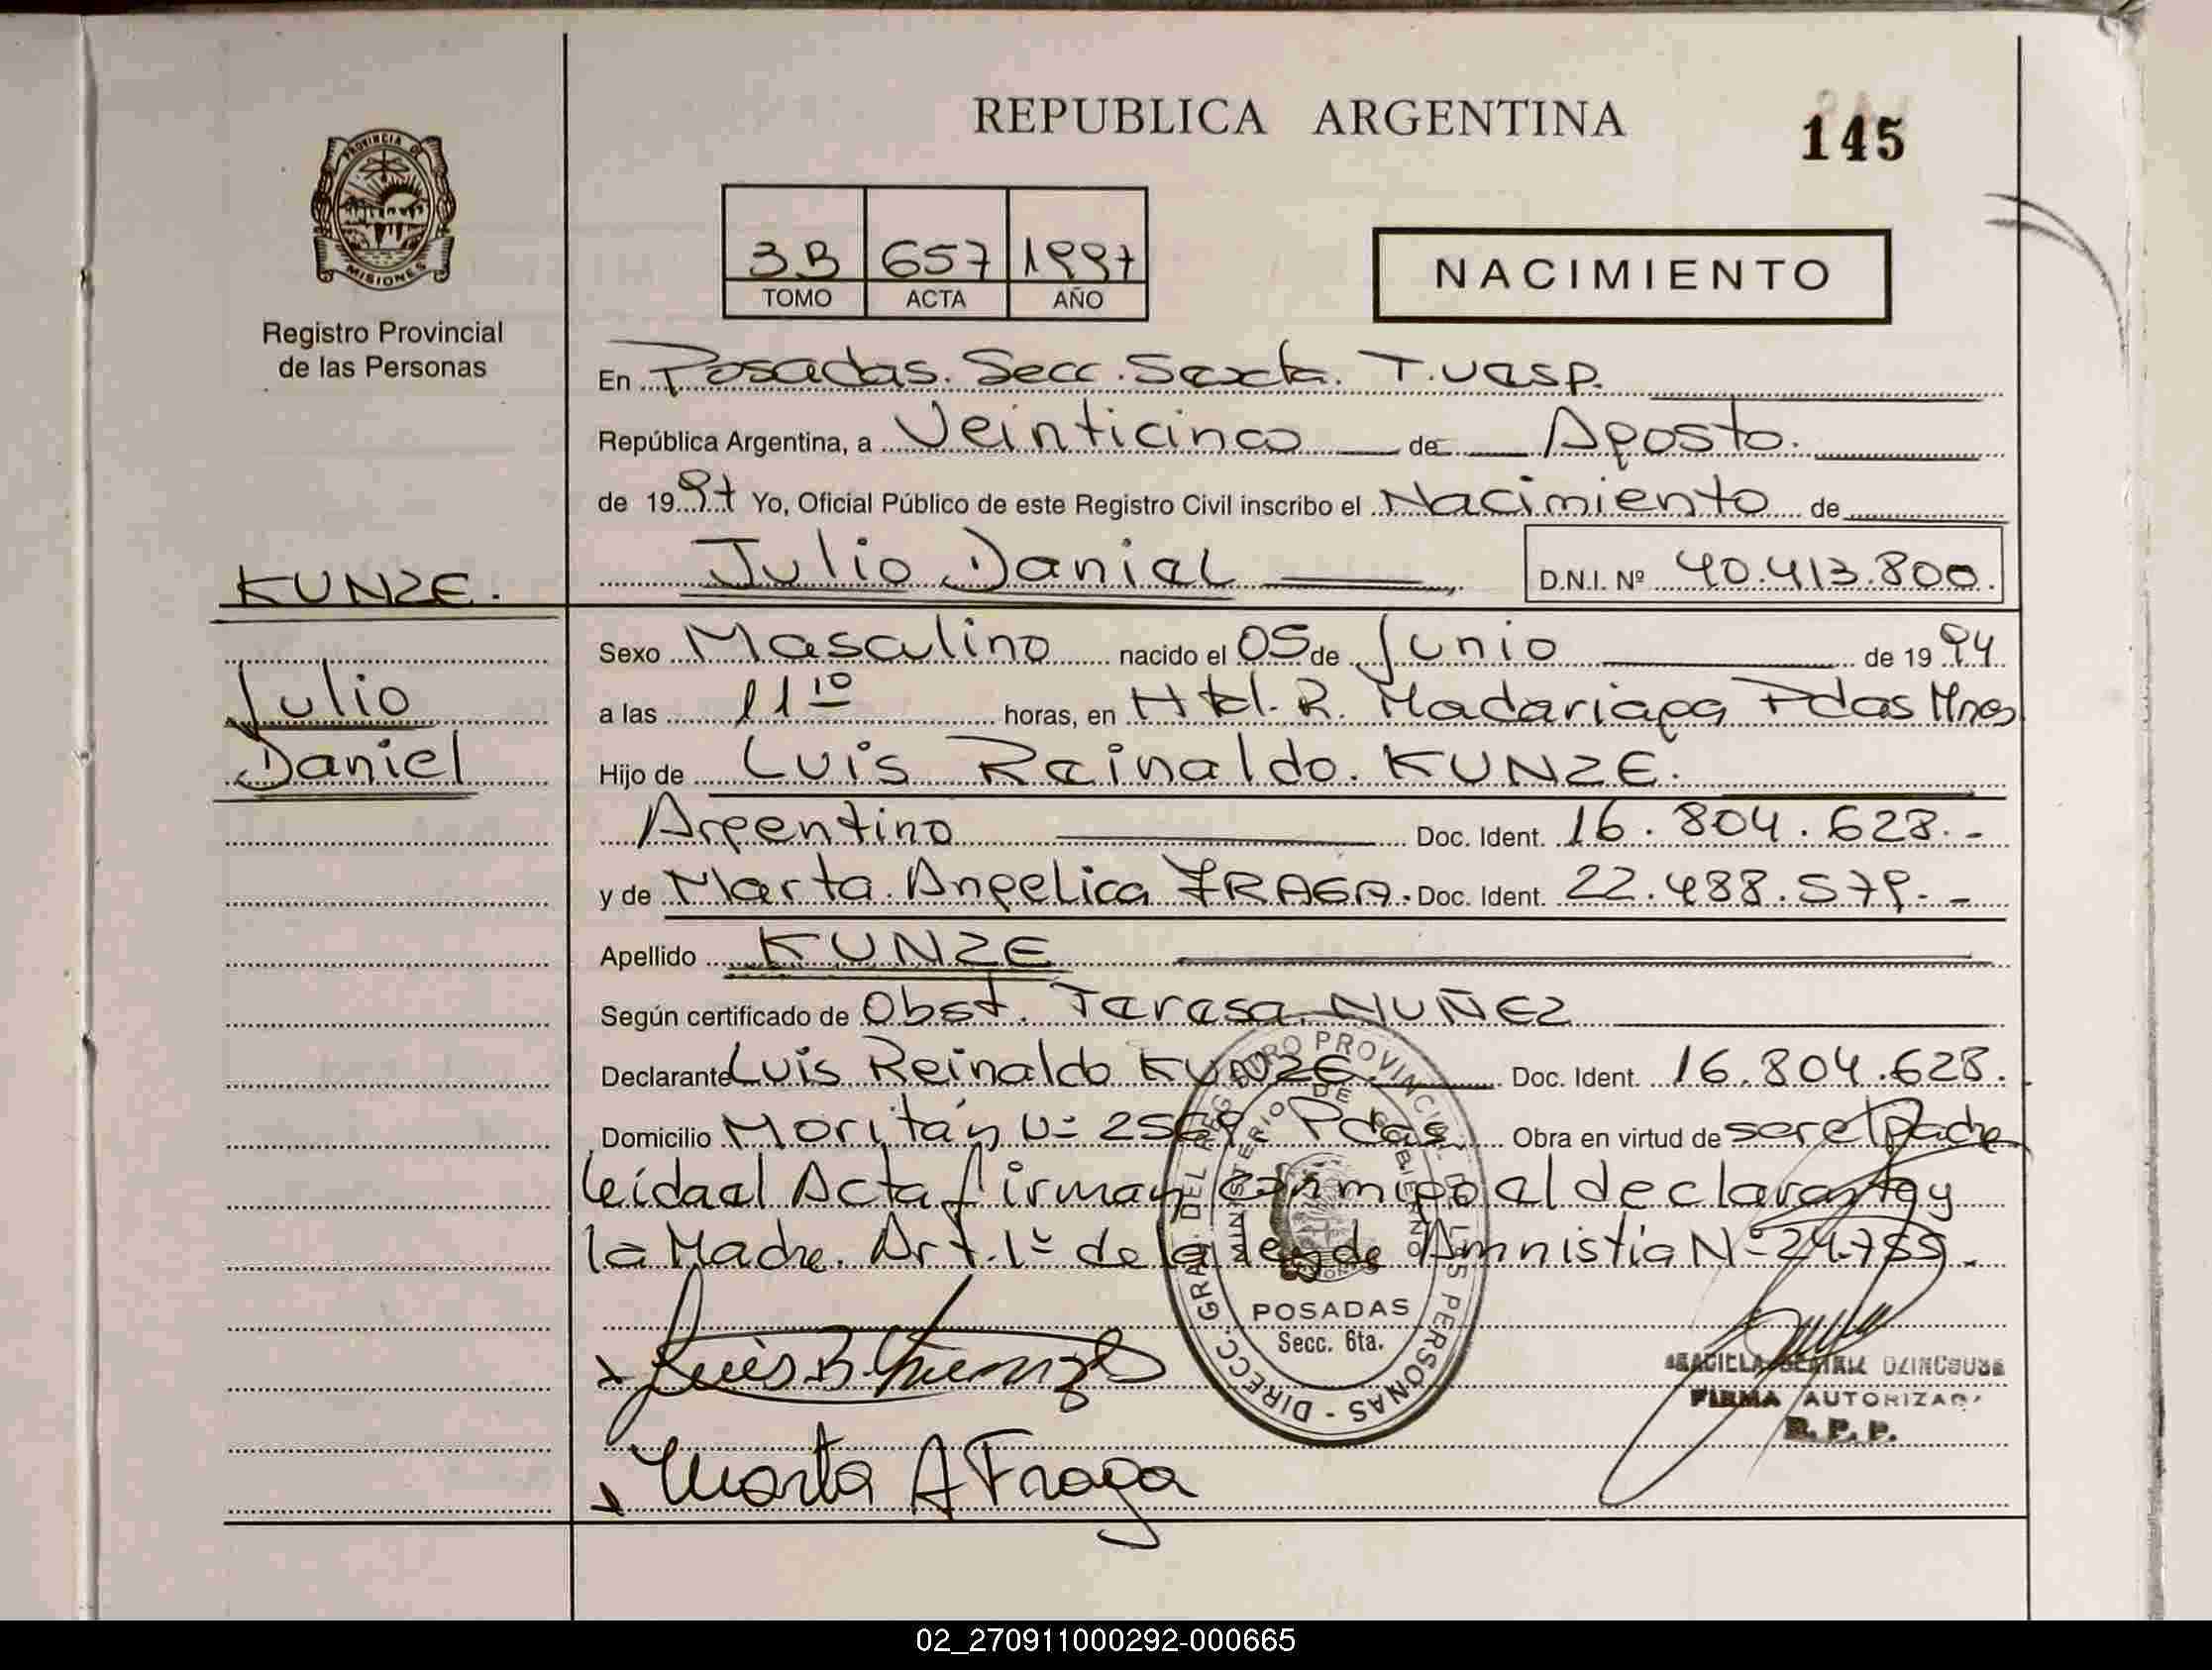 REPUBLICA ARGENTINA
145
PROVINCIA DE
MISIONES
Registro Provincial
de las Personas
3B 657 1997
TOMO ACTA AÑO
NACIMIENTO
En Posadas. Secc. Sexta. T. Vesp.
República Argentina, a Veinticinco de Agosto.
de 1997 Yo, Oficial Público de este Registro Civil inscribo el Nacimiento de
Julio Daniel D.N.I. Nº 40.413.800.
KUNZE.
Julio
Daniel
Sexo Masculino nacido el 05 de Junio de 1994
a las 11 10 horas, en Htal. R. Madariaga Pdas Mnes
Hijo de Luis Reinaldo. KUNZE.
Argentino Doc. Ident. 16.804.628.-
y de Marta Angelica FRAGA. Doc. Ident. 22.488.579.-
Apellido KUNZE
Según certificado de Obst. Teresa NUÑEZ
Declarante Luis Reinaldo KUNZE. Doc. Ident. 16.804.628.
Domicilio Moritán Nº 2569. Pdas. Obra en virtud de ser el Padre
leída el Acta firman conmigo el declarante y
la Madre. Art. 1º de la ley de Amnistia Nº 24.755.-
DIRECC. GRAL. DEL REGISTRO PROVINCIAL DE LAS PERSONAS -
MINISTERIO DE GOBIERNO
POSADAS
Secc. 6ta.
FIRMA AUTORIZADA
R.P.P.
Marta A Fraga
02_270911000292-000665